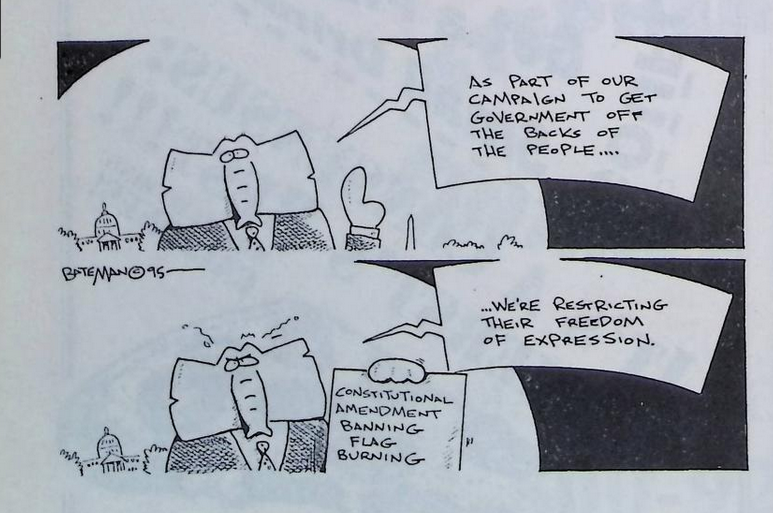 AS PART OF OUR
CAMPAIGN TO GET
GOVERNMENT OFF
THE BACKS OF
THE PEOPLE....
BATEMAN©95
...WE'RE RESTRICTING
THEIR FREEDOM
OF EXPRESSION.
CONSTITUTIONAL
AMENDMENT
BANNING
FLAG
BURNING